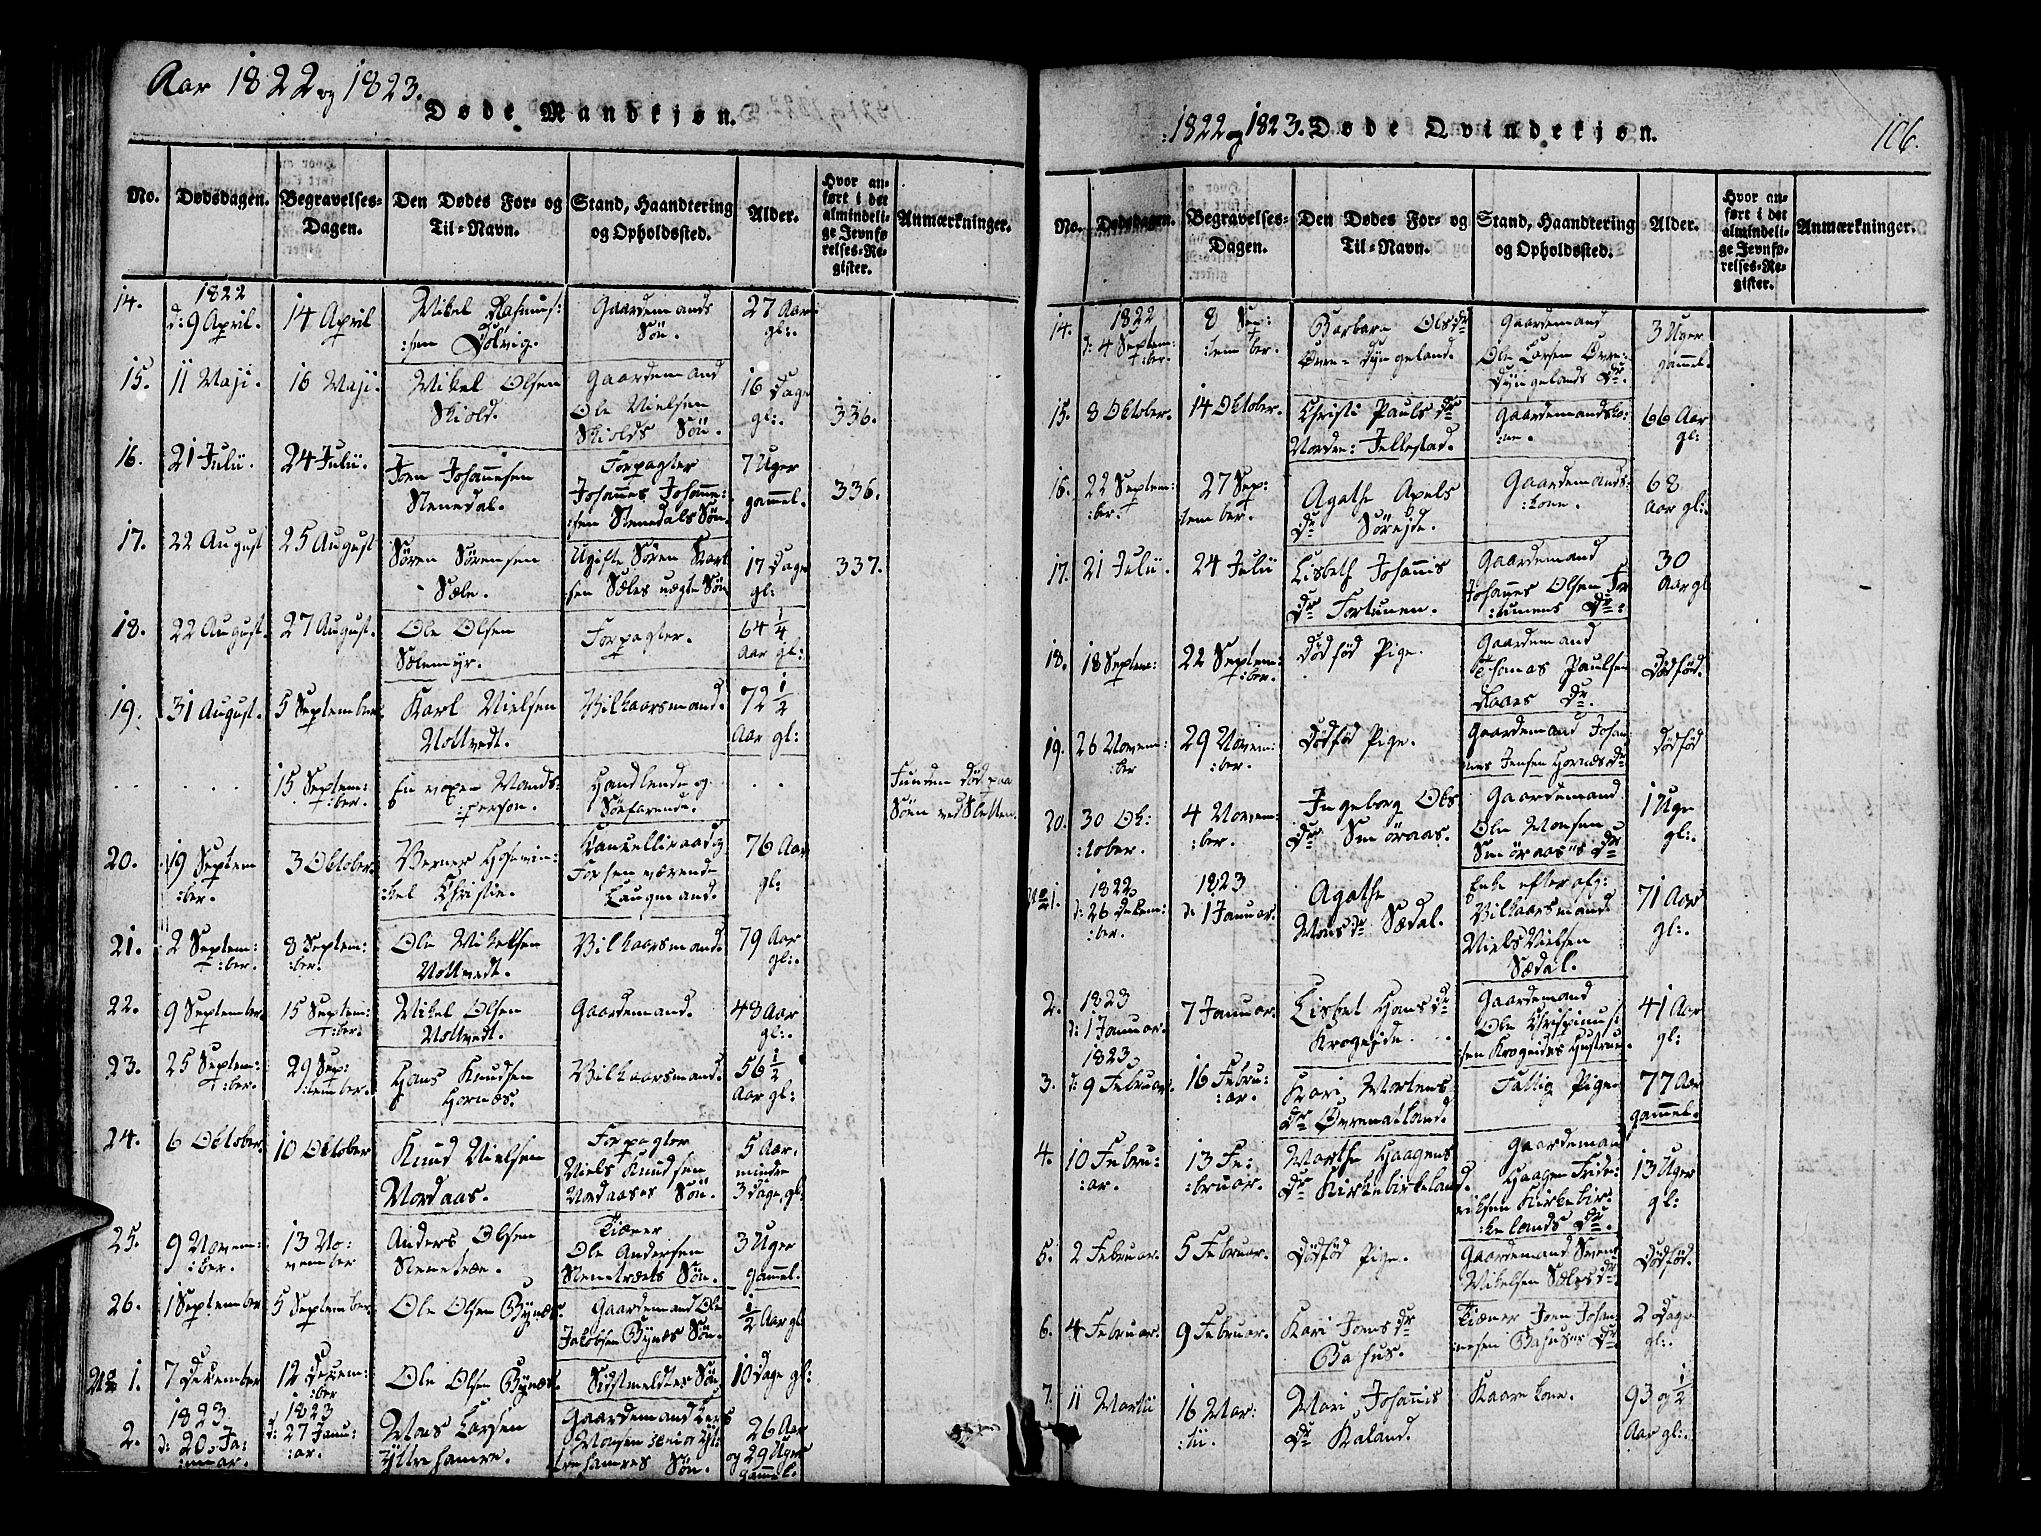 Aar 1822 og 1823.
Døde Mandkjøn.
No. Dødsdagen. Begravelses-Dagen. Den Dødes For- og Til-Navn. Stand, Haandtering og Opholdssted. Alder. Hvor anført i det almindelige Jevnførelses-Register. Anmærkninger.
14. 1822 d: 9 April. 14 April Mikel Rasmus:sen Dolvig. Gaardemands Søn. 27 Aar gl:.
15. 11 Maji. 16 Maji. Mikel Olsen Skiold. Gaardemand Ole Nielsen Skiolds Søn. 16 Dage gl:. 336.
16. 21 Julii. 24 Julii. Joen Johannesen Stenedal. Forpagter Johannes Johanne:sen Stenedals Søn. 7 Uger gammel. 336.
17. 22 August 25 August Søren Sørensen Sæle. Ugifte Søren Knut:sen Sæles uægte Søn 17 Dage gl: 337.
18. 22 August. 27 August. Ole Olsen Sælemyr. Forpagter. 64 1/4 Aar gl:
19. 31 August. 5 September Karl Nielsen Nottvedt. Vilkaarsmand. 72 1/2 Aar gl:
15 Septem:ber. En voxen Mands:person. Handlende og Søefarende. Funden død paa Søen ved Sletten.
20. 19 Septem:ber. 3 Oktober. Werner Hosewin:kel Christie. Kancelliraad og Forhenværende Laugmand. 76 Aar gl:
21. 2 Septem:ber. 8 Septem:ber. Ole Mikelsen Nottvedt. Vilkaarsmand. 79 Aar gl:.
22. 9 September 15 Septem:ber. Mikel Olsen Nottvedt. Gaardemand. 48 Aar gl:.
23. 25 Septem:ber. 29 Sep:tember. Hans Knudsen Hornæs. Vilkaarsmand. 56 1/2 Aar gl:
24. 6 Oktober. 10 Oktober Knud Nielsen Nordaas. Forpagter Niels Knudsen Nordaases Søn. 5 Aar, mindre 3 Dage, gl:
25. 9 Novem:ber. 13 November Anders Olsen Stenetræe. Tiæner Ole Andersen Stenetræets Søn. 3 Uger gammel.
26. 1 September 5 September. Ole Olsen Bynæs. Gaardemand Ole Jakobsen Bynæs Søn. 1/2 Aar gl:
No 1. 7 December 12 Decem:ber Ole Olsen Bynæs. Sidstmeldtes Søn 10 Dage gl:
2. 1823 d: 20. Ja:nuar. 1823 d: 27 Janu:ar. Mons Larsen Ytrehamre. Gaardemand Lars Monsen senior Yt:trehamres Søn. 26 Aar og 29 Uger gammel.
1822 og 1823. Døde Qvindekjøn.
106.
No. Dødsdagen. Begravelses-Dagen. Den Dødes For- og Til-Navn. Stand, Haandtering og Opholdssted. Alder. Hvor anført i det almindelige Jevnførelses-Register. Anmærkninger.
14. 1822 d: 4 Septem:ber. 8 Sep:tember. Barbara Olsdr Øvre-Dyngeland. Gaardemand Ole Larsen Øvre:Dyngelands Dr. 3 Uger gammel.
15. 8 Oktober. 14 Oktober. Christi Pauls dr Nordre: Jellestad. Gaardemandsko:ne. 66 Aar gl:
16. 22 Septem:ber. 27 Sep:tember. Agathe Apels Dr Sørejde. Gaardemands:kone. 68 Aar gl:.
17. 21 Julii 24 Julii Lisbeth Johannis Dr Fortunen. Gaardemand Johannes Olsen For:tunens Dr. 30 Aar gl
18. 18 Septem: 22 Septem:ber. Dødfød Pige. Gaardemand Thomas Paulsen Raaes Dr. Dødfød.
19. 26 Novem:ber 29 Novem:ber. Dødfød Pige. Gaardemand Johan:nes Jensen Hornæs Dr. dødfød
20. 30 Ok:tober. 4 Novem:ber. Ingeborg Ols Dr Smøraas. Gaardemand Ole Monsen Smøraases Dr 1 Uge gl:.
No 1. 1822 d: 26 Dekem:ber. 1823 d: 1 Januar. Agathe Monsdr Sædal. Enke efter afg: Vilkaarsmand Niels Nielsen Sædal. 71 Aar gl:.
2. 1823 d: 1 Januar. 7 Januar. Lisbet Hans dr Krogejde. Gaardemand Ole Chrispinus:sen Krogeides Hustrue. 41 Aar gl:
3. 1823 d: 9 Februar. 16 Febru:ar. Kari Mortens dr Øvrenatland. Fattig Pige 77 Aar gammel.
4. 10 Febru:ar. 13 Fe:bruar. Marthe Haagens Dr Kirkebirkeland. Gaardemand Haagen Fride:riksen Kirkebir:kelands Dr. 13 Uger gl:
5. 2 Februar. 5 Februar. Dødfød Pige. Gaardemand Svend Mikelsen Sæles dr. Dødfød.
6. 4 Februar. 9 Februar. Kari Joens dr Bahus. Tiæner Joen Johan:nesen Bahuses Dr. 2 Dage gl:.
7. 11 Martii 16 Mar:tii. Mari Johannis Dr Kaland. Kaarekone. 93 og 1/2 Aar gl:.